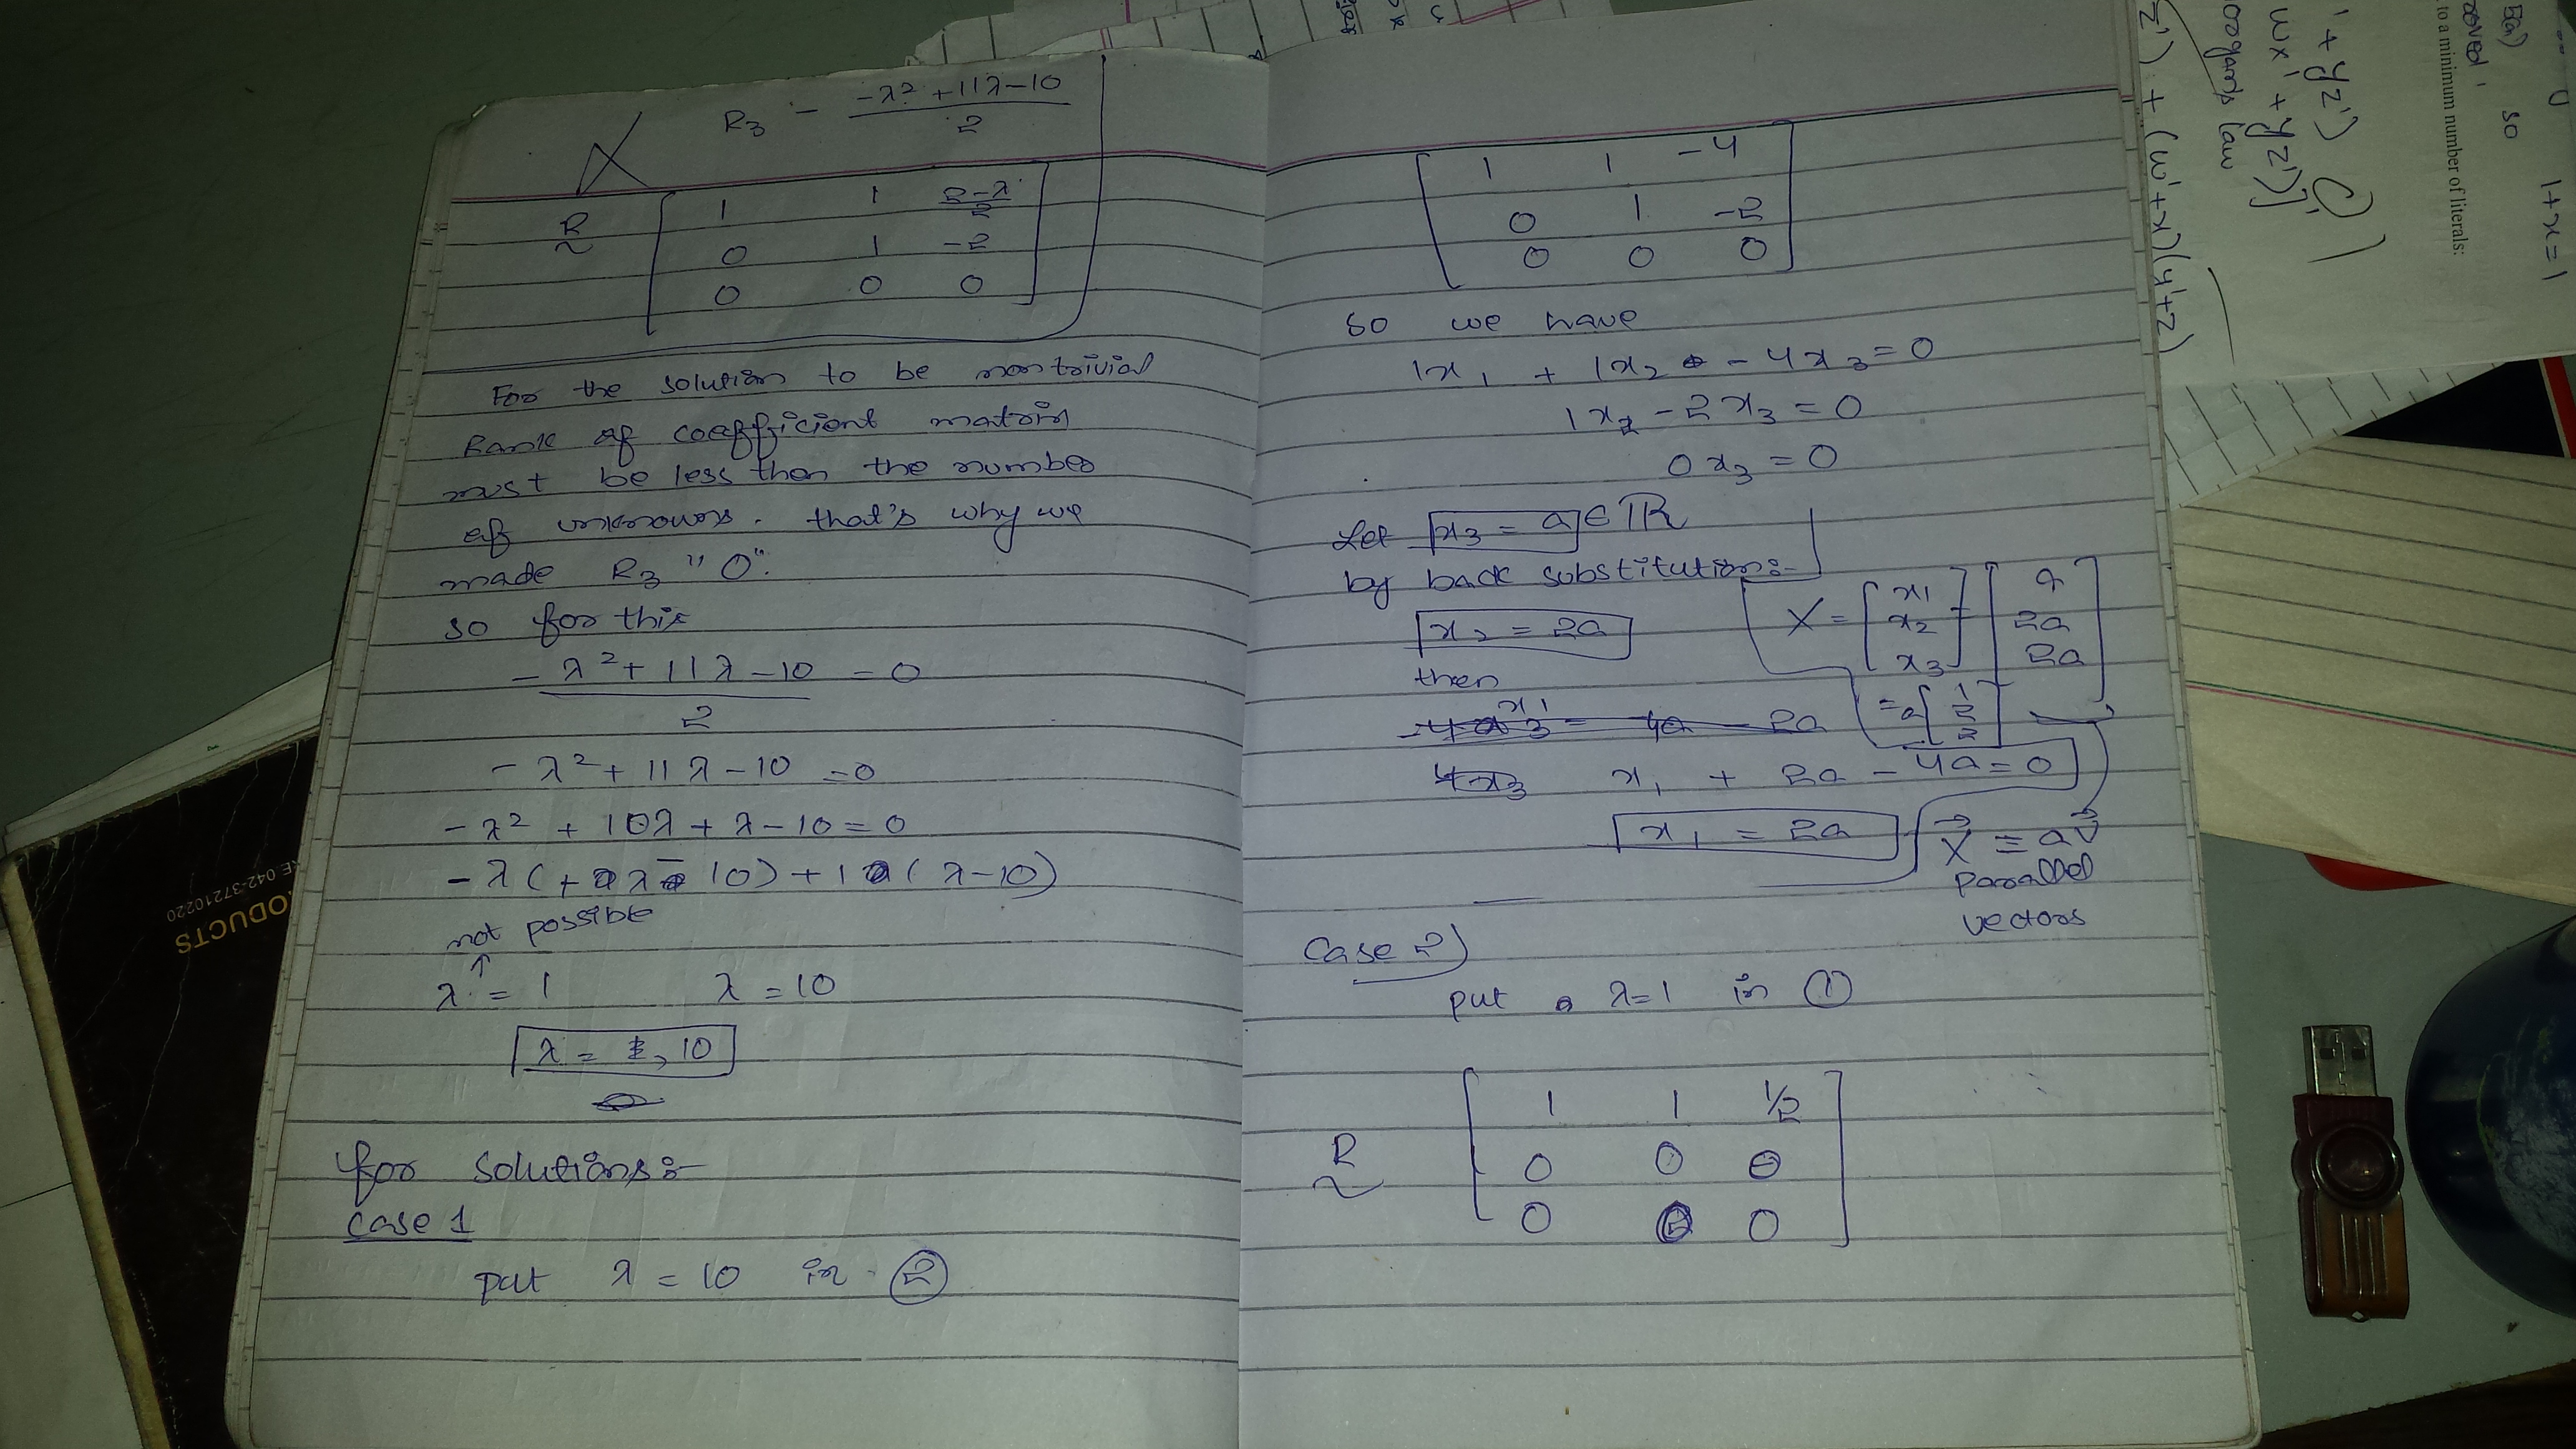 R3 - -λ² + 11λ - 10 / 2
R ~ [ 1 1 2-λ/2
0 1 -2
0 0 0 ]
For the solution to be nontrivial
Rank of coefficient matrix
must be less then the number
of unknowns. that's why we
made R3 "0".
so for this
-λ² + 11λ - 10 / 2 = 0
-λ² + 11λ - 10 = 0
-λ² + 10λ + λ - 10 = 0
-λ(+λ - 10) + 1(λ - 10)
not possible
↑
λ = 1 λ = 10
λ = 1, 10
for solutions:-
case 1
put λ = 10 in ②
[ 1 1 -4
0 1 -2
0 0 0 ]
so we have
1x1 + 1x2 - 4x3 = 0
1x2 - 2x3 = 0
0x3 = 0
Let x3 = a ∈ ℝ
by back substitution:-
x2 = 2a
then
x1 + 2a - 4a = 0
x1 = 2a
X = [ x1 x2 x3 ] = [ a 2a 2a ]
= a [ 1 2 2 ]
X = aV
parallel
vectors
Case 2)
put λ=1 in ①
R ~ [ 1 1 1/2
0 0 0
0 0 0 ]
' + yz')
wx' + yz')]
organ's law
z') + (w'+x)(y'+z)
5(a)
so
1+x=1
to a minimum number of literals:
ODUCTS
E 042-37210220